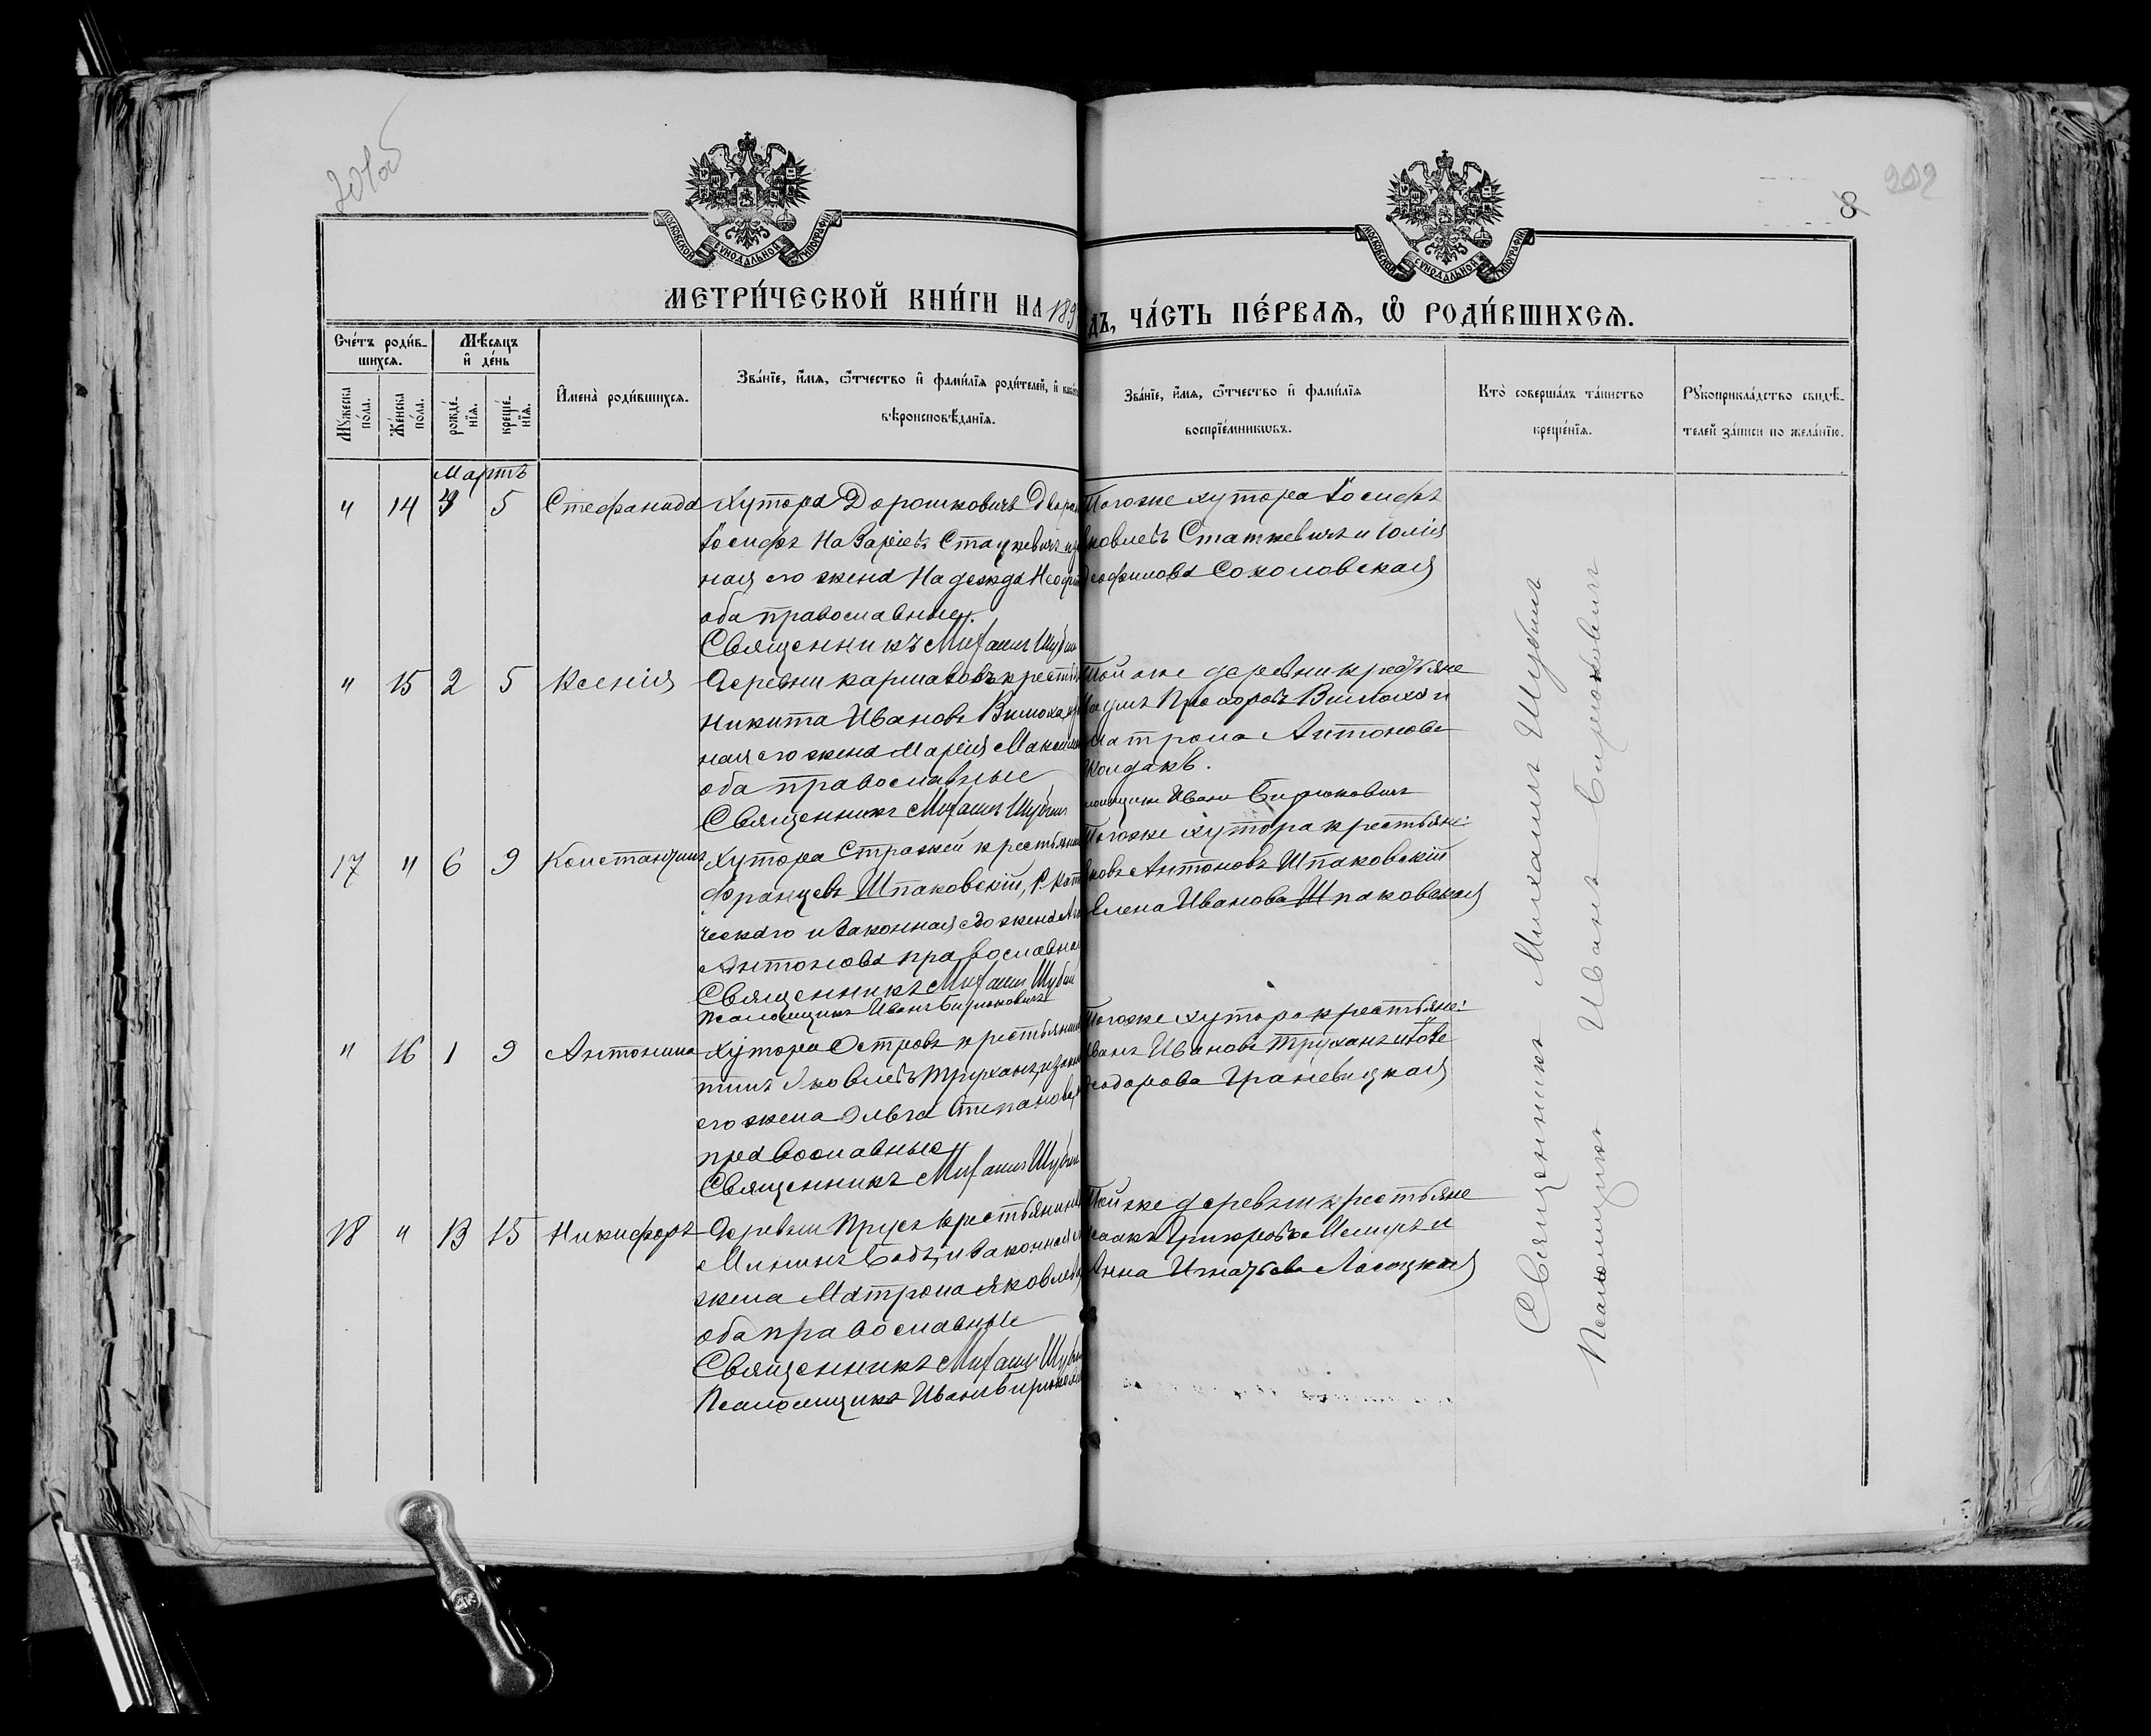 201об
202
8
МОСКОВСКОЙ СУНОДАЛЬНОЙ ТИПОГРАФІИ
МОСКОВСКОЙ СУНОДАЛЬНОЙ ТИПОГРАФІИ
МЕТРИ́ЧЕСКОЙ КНИ́ГИ НА 189
ДЪ, ЧА́СТЬ ПЕ́РВАѦ, Ѡ҆ РОДИ́ВШИХСѦ.
Сче́тъ роди́в-
шихся.
Мѣ́сяцъ
и҆ де́нь
Мꙋ́жеска
по́ла.
Же́нска
по́ла.
рожде́-
нїя.
креще́-
нїя.
И҆мена̀ роди́вшихся.
Зва́нїе, и҆́мя, ѻ҆́тчество и҆ фами́лїя роди́телей, и҆
вѣроисповѣ́данїя.
Зва́нїе, и҆́мя, ѻ҆́тчество и҆ фами́лїя
воспрїе́мникѡвъ.
Кто̀ соверша́лъ та́инство
креще́нїя.
Рꙋкоприкла́дство свидѣ́-
телей за́писи по жела́нїю.
Мартъ
" 14 3 5 Стефанида
Хутора Дорошковичъ Двора
Іосифъ Назаріевъ Стацкевичъ и
ная его жена Надежда
оба православные.
Священникъ Михаилъ Шубин
Тогоже хутора Іосифъ
ковлевъ Статкевичъ и Юлія
еофилова Соколовская
" 15 2 5 Ксенія
Деревни крест
Никита Ивановъ
ная его жена Марія Макси
оба православные
Священникъ Михаилъ Шубинъ
Той же деревни крестьяне
Прохоровъ и
Матрона Антонова
Колдакъ.
ломщикъ Иванъ Бирюковичъ
17 " 6 9 Константинъ
Хутора Стражей крестьянин
Францевъ Шпаковскій, Р. Кат
ческаго и законная его жена
Антонова православная
Священникъ Михаилъ Шубин
Псаломщикъ Иванъ Бирюковичъ
Тогоже хутора крестьяне:
ковъ Антоновъ Шпаковскій
Елена Иванова Шпаковская
" 16 1 9 Антонина
Хутора Островъ крестьянин
тинъ Яковлевъ Труханъ, и зако
его жена Ольга Степанова,
православные
Священникъ Михаилъ Шубин
Тогоже хутора крестьяне:
Иванъ Ивановъ Труханъ и
еодорова Граневицкая
18 " 13 15 Никифоръ
Деревни Прусъ крестьянин
Мининъ и законная
жена Матрона Яковлева,
оба православные
Священникъ Михаилъ Шуби
Псаломщикъ Иванъ Бирюкови
Той же деревни крестьяне
и
Анна Игнатьева Лосицкая
Священникъ Михаилъ Шубинъ
Псаломщикъ Иванъ Бирюкович